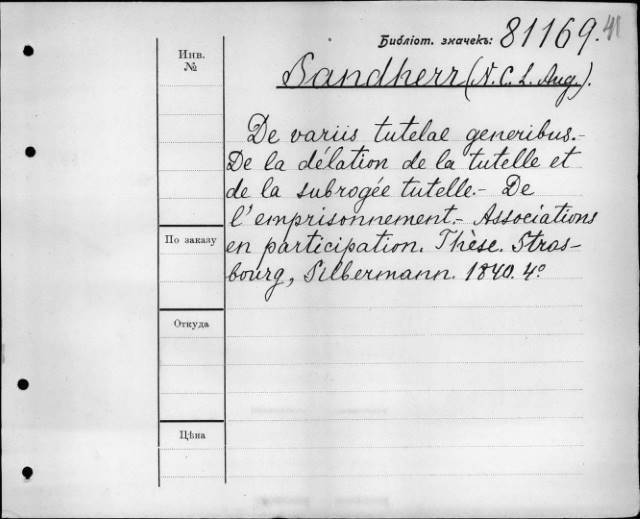 Библіот. значекъ: 81169.41
Инв. №
Sandherr (N. C. L. Aug.).
De variis tutelae generibus.-
De la délation de la tutelle et
de la subrogée tutelle.- De
l'emprisonnement.- Associations
По заказу
en participation. Thèse. Stras-
bourg, Silbermann. 1840. 4º
Откуда
Цѣна